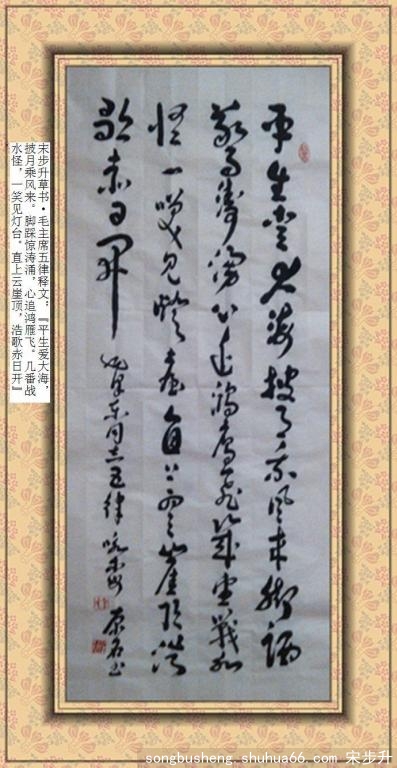 平生爱大海披月乘风来脚踩
惊涛涌心追鸿雁飞几番战水
怪一笑见灯台直上云崖顶浩
歌赤日开
泽东同志五律
宋步升草书·毛主席五律释文：『平生爱大海，
披月乘风来。脚踩惊涛涌，心追鸿雁飞。几番战
水怪，一笑见灯台。直上云崖顶，浩歌赤日开』
songbusheng.shuhua66.com 宋步升